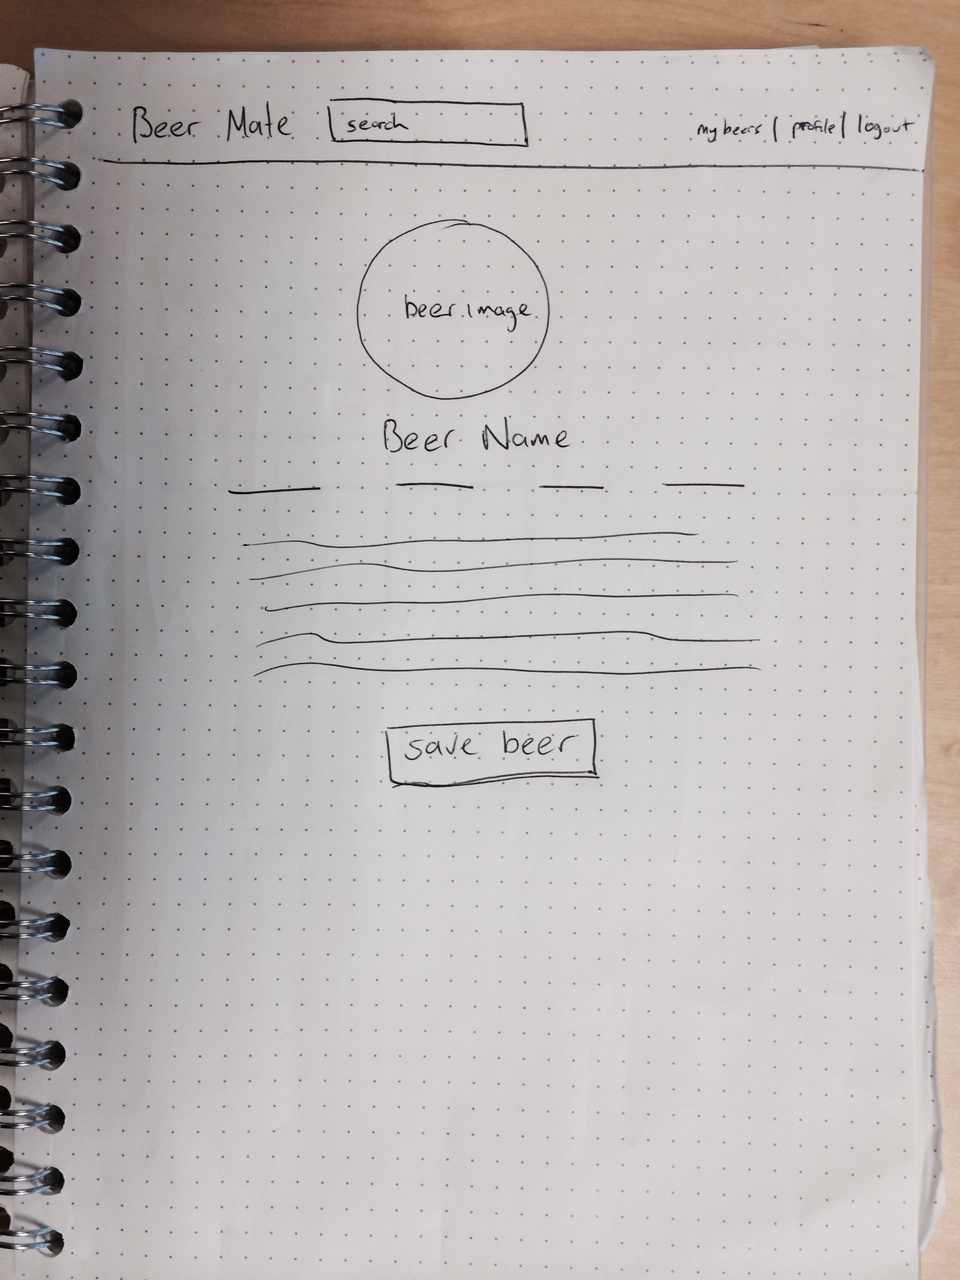 Beer Mate search my beers | profile | logout
beer image
Beer Name
save beer